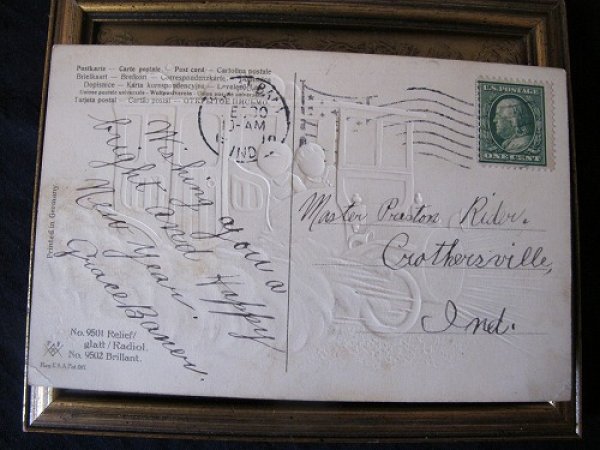 Postkarte — Carte postale — Post card — Cartolina postale
Briefkaart — Brefkort — Correspondenzkarte
Dopisnice — Karta korespondencyjna — Levelező-Lap
Unione postale universale — Weltpostverein — Union postale universelle
Tarjeta postal — Cartão postal —
AM
IND
U.S. POSTAGE
ONE CENT
Wishing you a
bright and Happy
New Year.
Grace
Master Preston Rider.
Crothersville,
Ind.
Printed in Germany.
No. 9501 Relief/
glatt/Radiol.
No. 9502 Brillant.